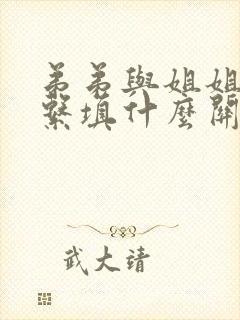 弟弟與姐姐
繫填什麼關
武大靖